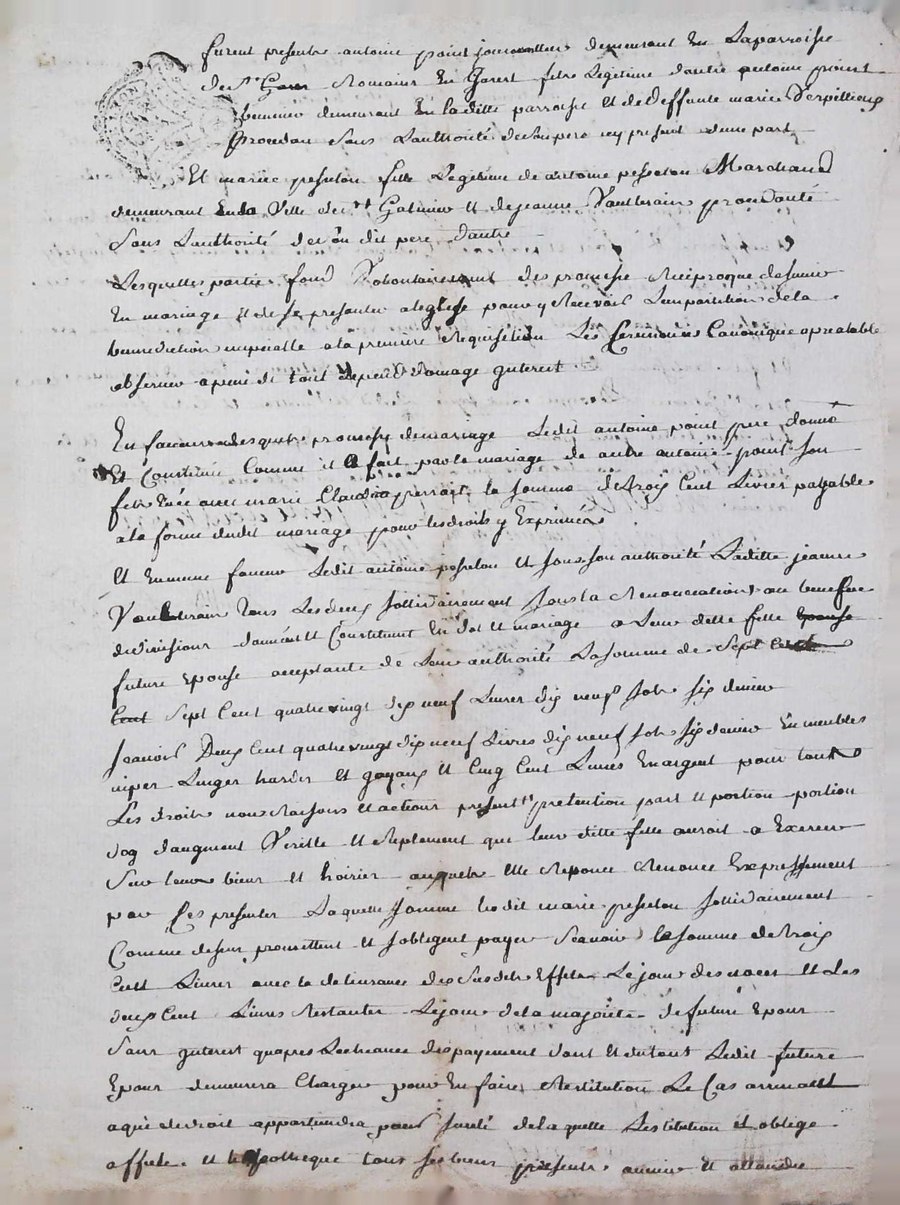 furent presents antoine point journallier demeurant En Laparroisse
de st Romains En Garest fils Legitime dautre antoine point
demeurant En laditte parroisse Et de deffunte marie Verpillieux
procedan sous Lauthorité de son pere icy present dune part
Et marie peseton fille Legitime de antoine peseton Marchand
demeurant En la Ville de st Galmier Et de jeanne Vauberain procedante
sous Lauthorité de son dit pere dautre
Lesquelles parties fond Volontairement des promesse Reciproque de sunir
En mariage Et de se presenter aleglise pour y Recevoir Limpartition de la
benediction nuptialle a la premiere Requisition Les Ceremonies Canonique apreatable
observer a peine de tout depend domage ynterest
En faveur desquelle promesse de mariage Ledit antoine point pere donne
Et Constitue Comme il a fait par le mariage de autre antoine point son
fils avec marie Claudra perrait la somme de trois Cent Livres payable
a la forme dudit mariage pour les droits y Exprimés
Et En meme faveur Ledit antoine peseton Et sous son authorité Laditte jeanne
Vauberain tous Les deux sollidairement sous la Renonciation au benefice
de division donnent Et Constituent En dot Et mariage a Leur ditte fille epouse
future Epouse acceptante de Leur authorité La somme de sept cent
Cent sept Cent quatre vingt dix neuf Livres dix neuf sols six denier
scavoir Deux Cent quatre vingt dix neuf Livres dix neuf sols six denier En meubles
Linger hardes Et joyaux Et Cinq Cent Livres En argent pour tout
Les droits noms Raisons Et actions pretention part Et portion portion
daugment Et suplement que leur ditte fille auroit a Exercer
sur leurs biens Et hoirier auquels Elle Renonce Expressement
par Ces presentes Laquelle somme Lesdit marie peseton sollidairement
Comme dessus promettent Et sobligent payer scavoir la somme de trois
Cent Livres avec la delivrance des susdits Effets Le jour des noces Et Les
deux Cent Livres Restantes Le jour de la majorité de future Epoux
sans ynterest quapres Lecheance des payement dont Et du tout Ledit future
Epoux demeurera Charger pour En faire Restitution Le Cas arrivant
a qui de droit appartiendra pour sureté de laquelle Restitution il oblige
affecte Et hipotheque tous ses biens presents avenir Et